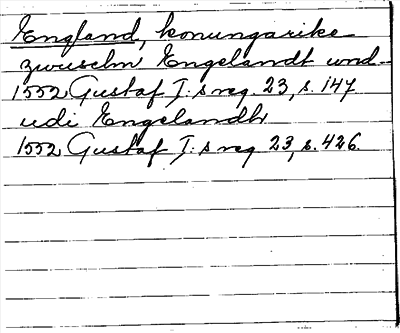 England, konungarike
zwuschn Engelandt und
1552 Gustaf I:s reg. 23, s. 147
udi Engelandh
1552 Gustaf I:s reg 23, s. 426